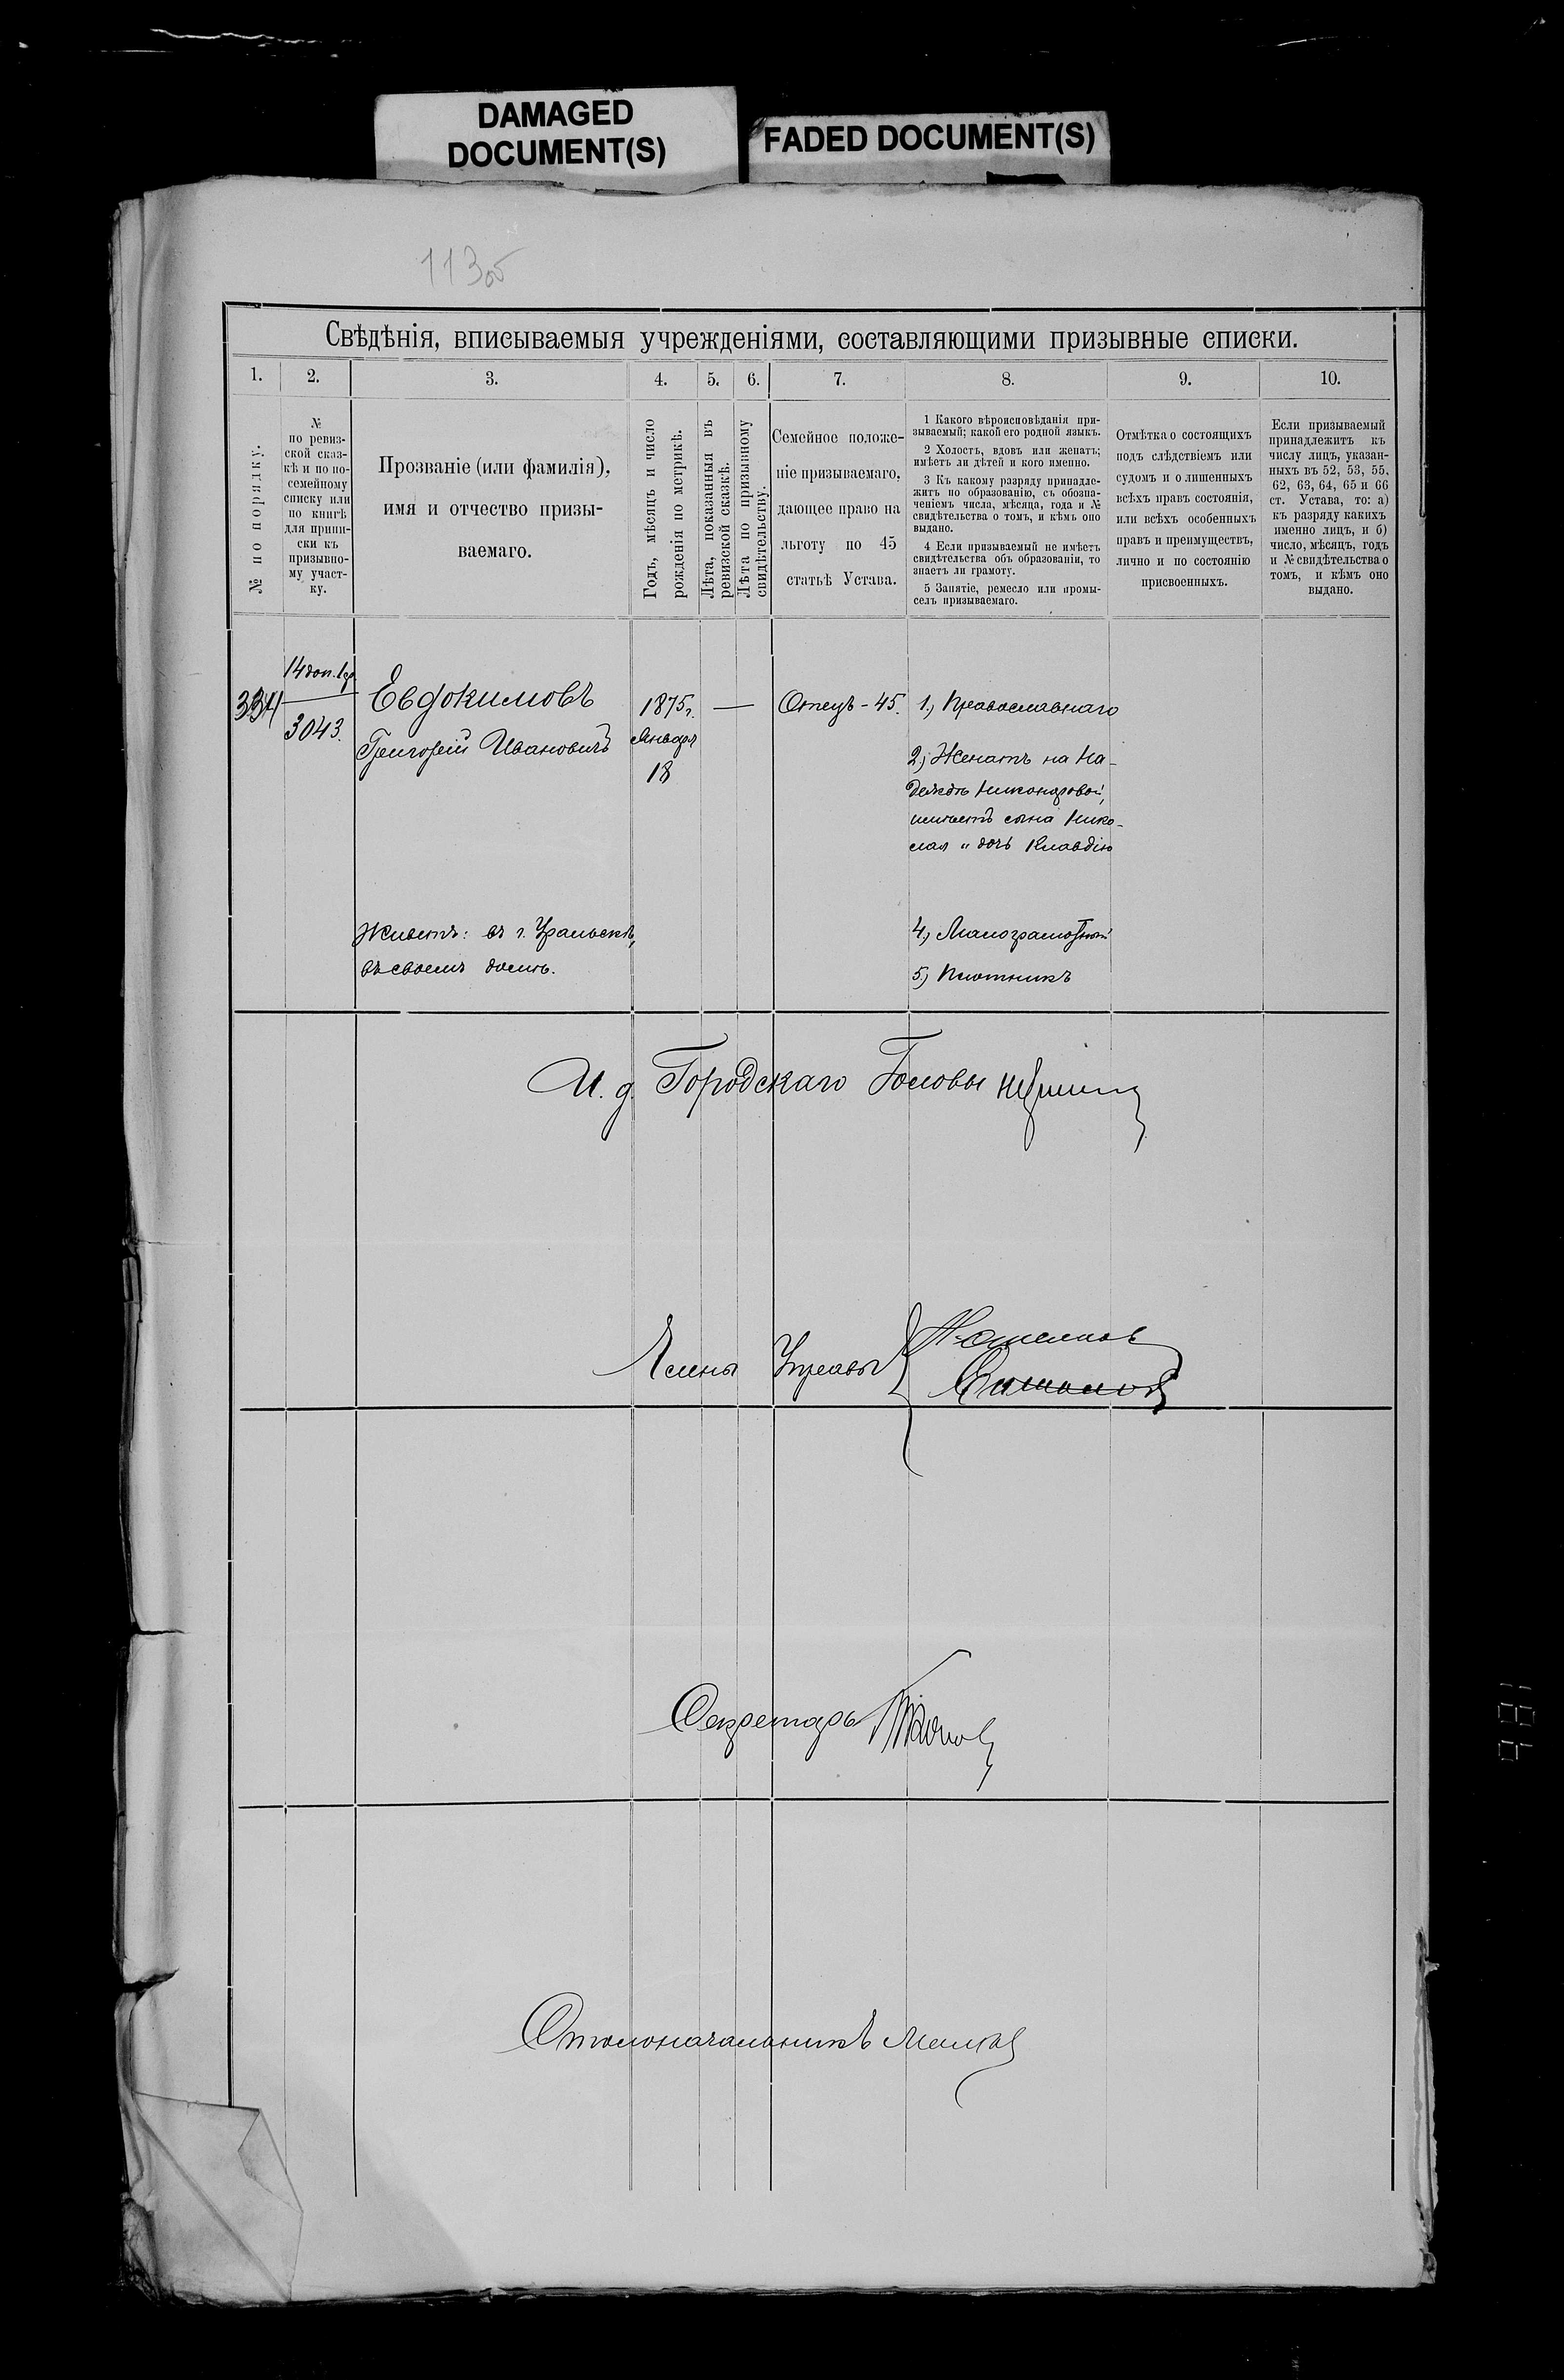 DAMAGED
DOCUMENT(S)
FADED DOCUMENT(S)
113 об
Свѣдѣнія, вписываемыя учрежденіями, составляющими призывные списки.
1. 2. 3. 4. 5. 6. 7. 8. 9. 10.
№ по порядку.
№
по ревиз-
ской сказ-
кѣ и по по-
семейному
списку или
по книгѣ
для припи-
ски къ
призывно-
му участ-
ку.
Прозваніе (или фамилія),
имя и отчество призы-
ваемаго.
Годъ, мѣсяцъ и число
рожденія по метрикѣ.
Лѣта, показанныя въ
ревизской сказкѣ.
Лѣта по призывному
свидѣтельству.
Семейное положе-
ніе призываемаго,
дающее право на
льготу по 45
статьѣ Устава.
1 Какого вѣроисповѣданія при-
зываемый; какой его родной языкъ.
2 Холостъ, вдовъ или женатъ;
имѣетъ ли дѣтей и кого именно.
3 Къ какому разряду принадле-
житъ по образованію, съ обозна-
ченіемъ числа, мѣсяца, года и №
свидѣтельства о томъ, и кѣмъ оно
выдано.
4 Если призываемый не имѣетъ
свидѣтельства объ образованіи, то
знаетъ ли грамоту.
5 Занятіе, ремесло или промы-
селъ призываемаго.
Отмѣтка о состоящихъ
подъ слѣдствіемъ или
судомъ и о лишенныхъ
всѣхъ правъ состоянія,
или всѣхъ особенныхъ
правъ и преимуществъ,
лично и по состоянію
присвоенныхъ.
Если призываемый
принадлежитъ къ
числу лицъ, указан-
ныхъ въ 52, 53, 55,
62, 63, 64, 65 и 66
ст. Устава, то: а)
къ разряду какихъ
именно лицъ, и б)
число, мѣсяцъ, годъ
и № свидѣтельства о
томъ, и кѣмъ оно
выдано.
334
14 доп.
3043.
Евдокимовъ
Григорій Ивановичъ
Живетъ: въ г. Уральскѣ,
въ своемъ домѣ.
1875 г.
Января
18
—
Отецъ - 45.
1.) Православнаго
2.) Женатъ на На-
деждѣ Никоноровой,
имѣетъ сына Нико-
лая и дочь Клавдію
4.) Малограмотный
5.) Плотникъ
И. д. Городскаго Головы
Члены Управы
Секретарь
Столоначальникъ
981